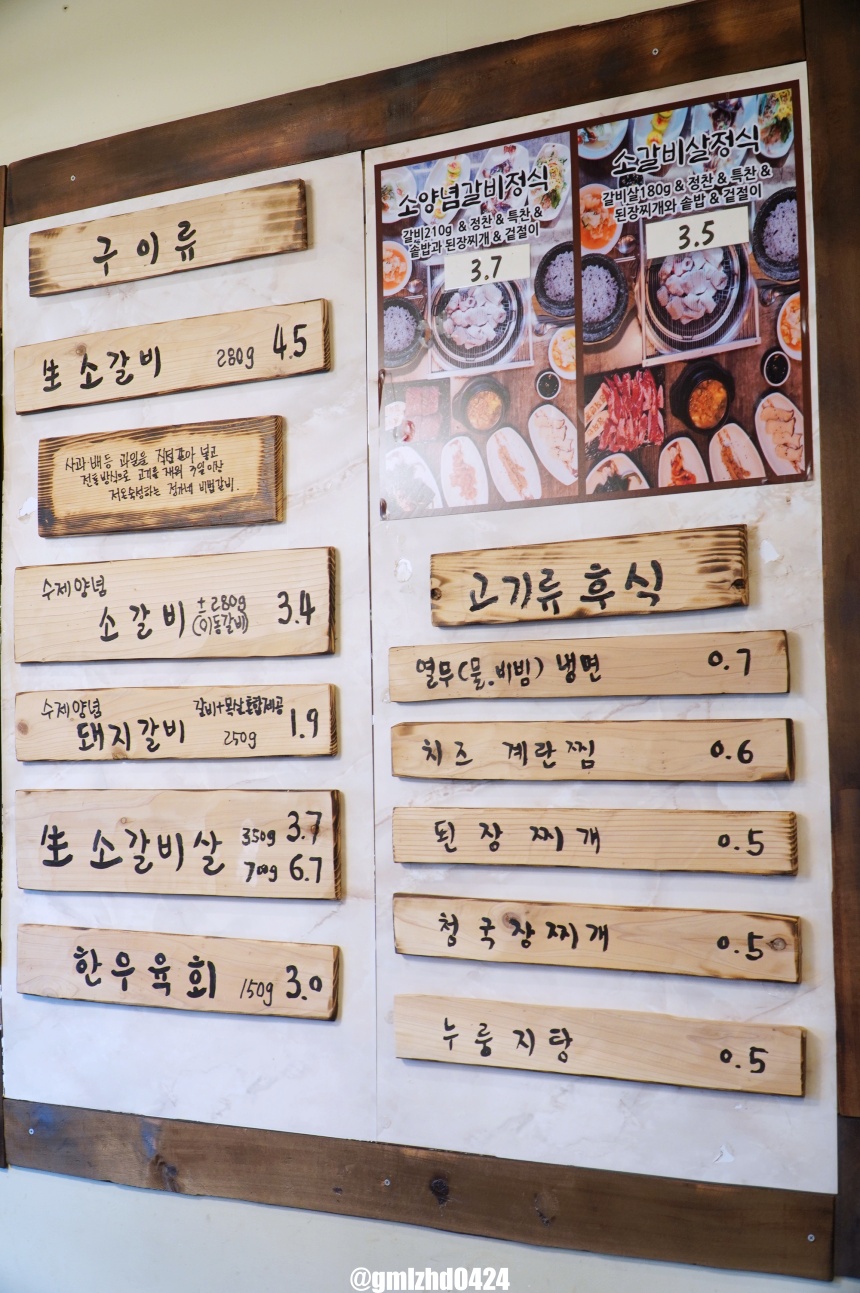 구이류
生 소갈비 280g 4.5
사과 배등 과일을 직접갈아 넣고
전통방식으로 고기를 재워 3일이상
저온숙성하는 정가네 비법갈비.
수제양념
소갈비 ±280g (이동갈비) 3.4
수제양념
돼지갈비 갈비+목살혼합제공 250g 1.9
生 소갈비살 350g 3.7
700g 6.7
한우육회 150g 3.0
소양념갈비정식
갈비210g & 정찬 & 특찬 &
솥밥과 된장찌개 & 겉절이
3.7
소갈비살정식
갈비살180g & 정찬 & 특찬 &
된장찌개와 솥밥 & 겉절이
3.5
고기류 후식
열무(물.비빔) 냉면 0.7
치즈 계란찜 0.6
된장찌개 0.5
청국장찌개 0.5
누룽지탕 0.5
@gmlzhd0424